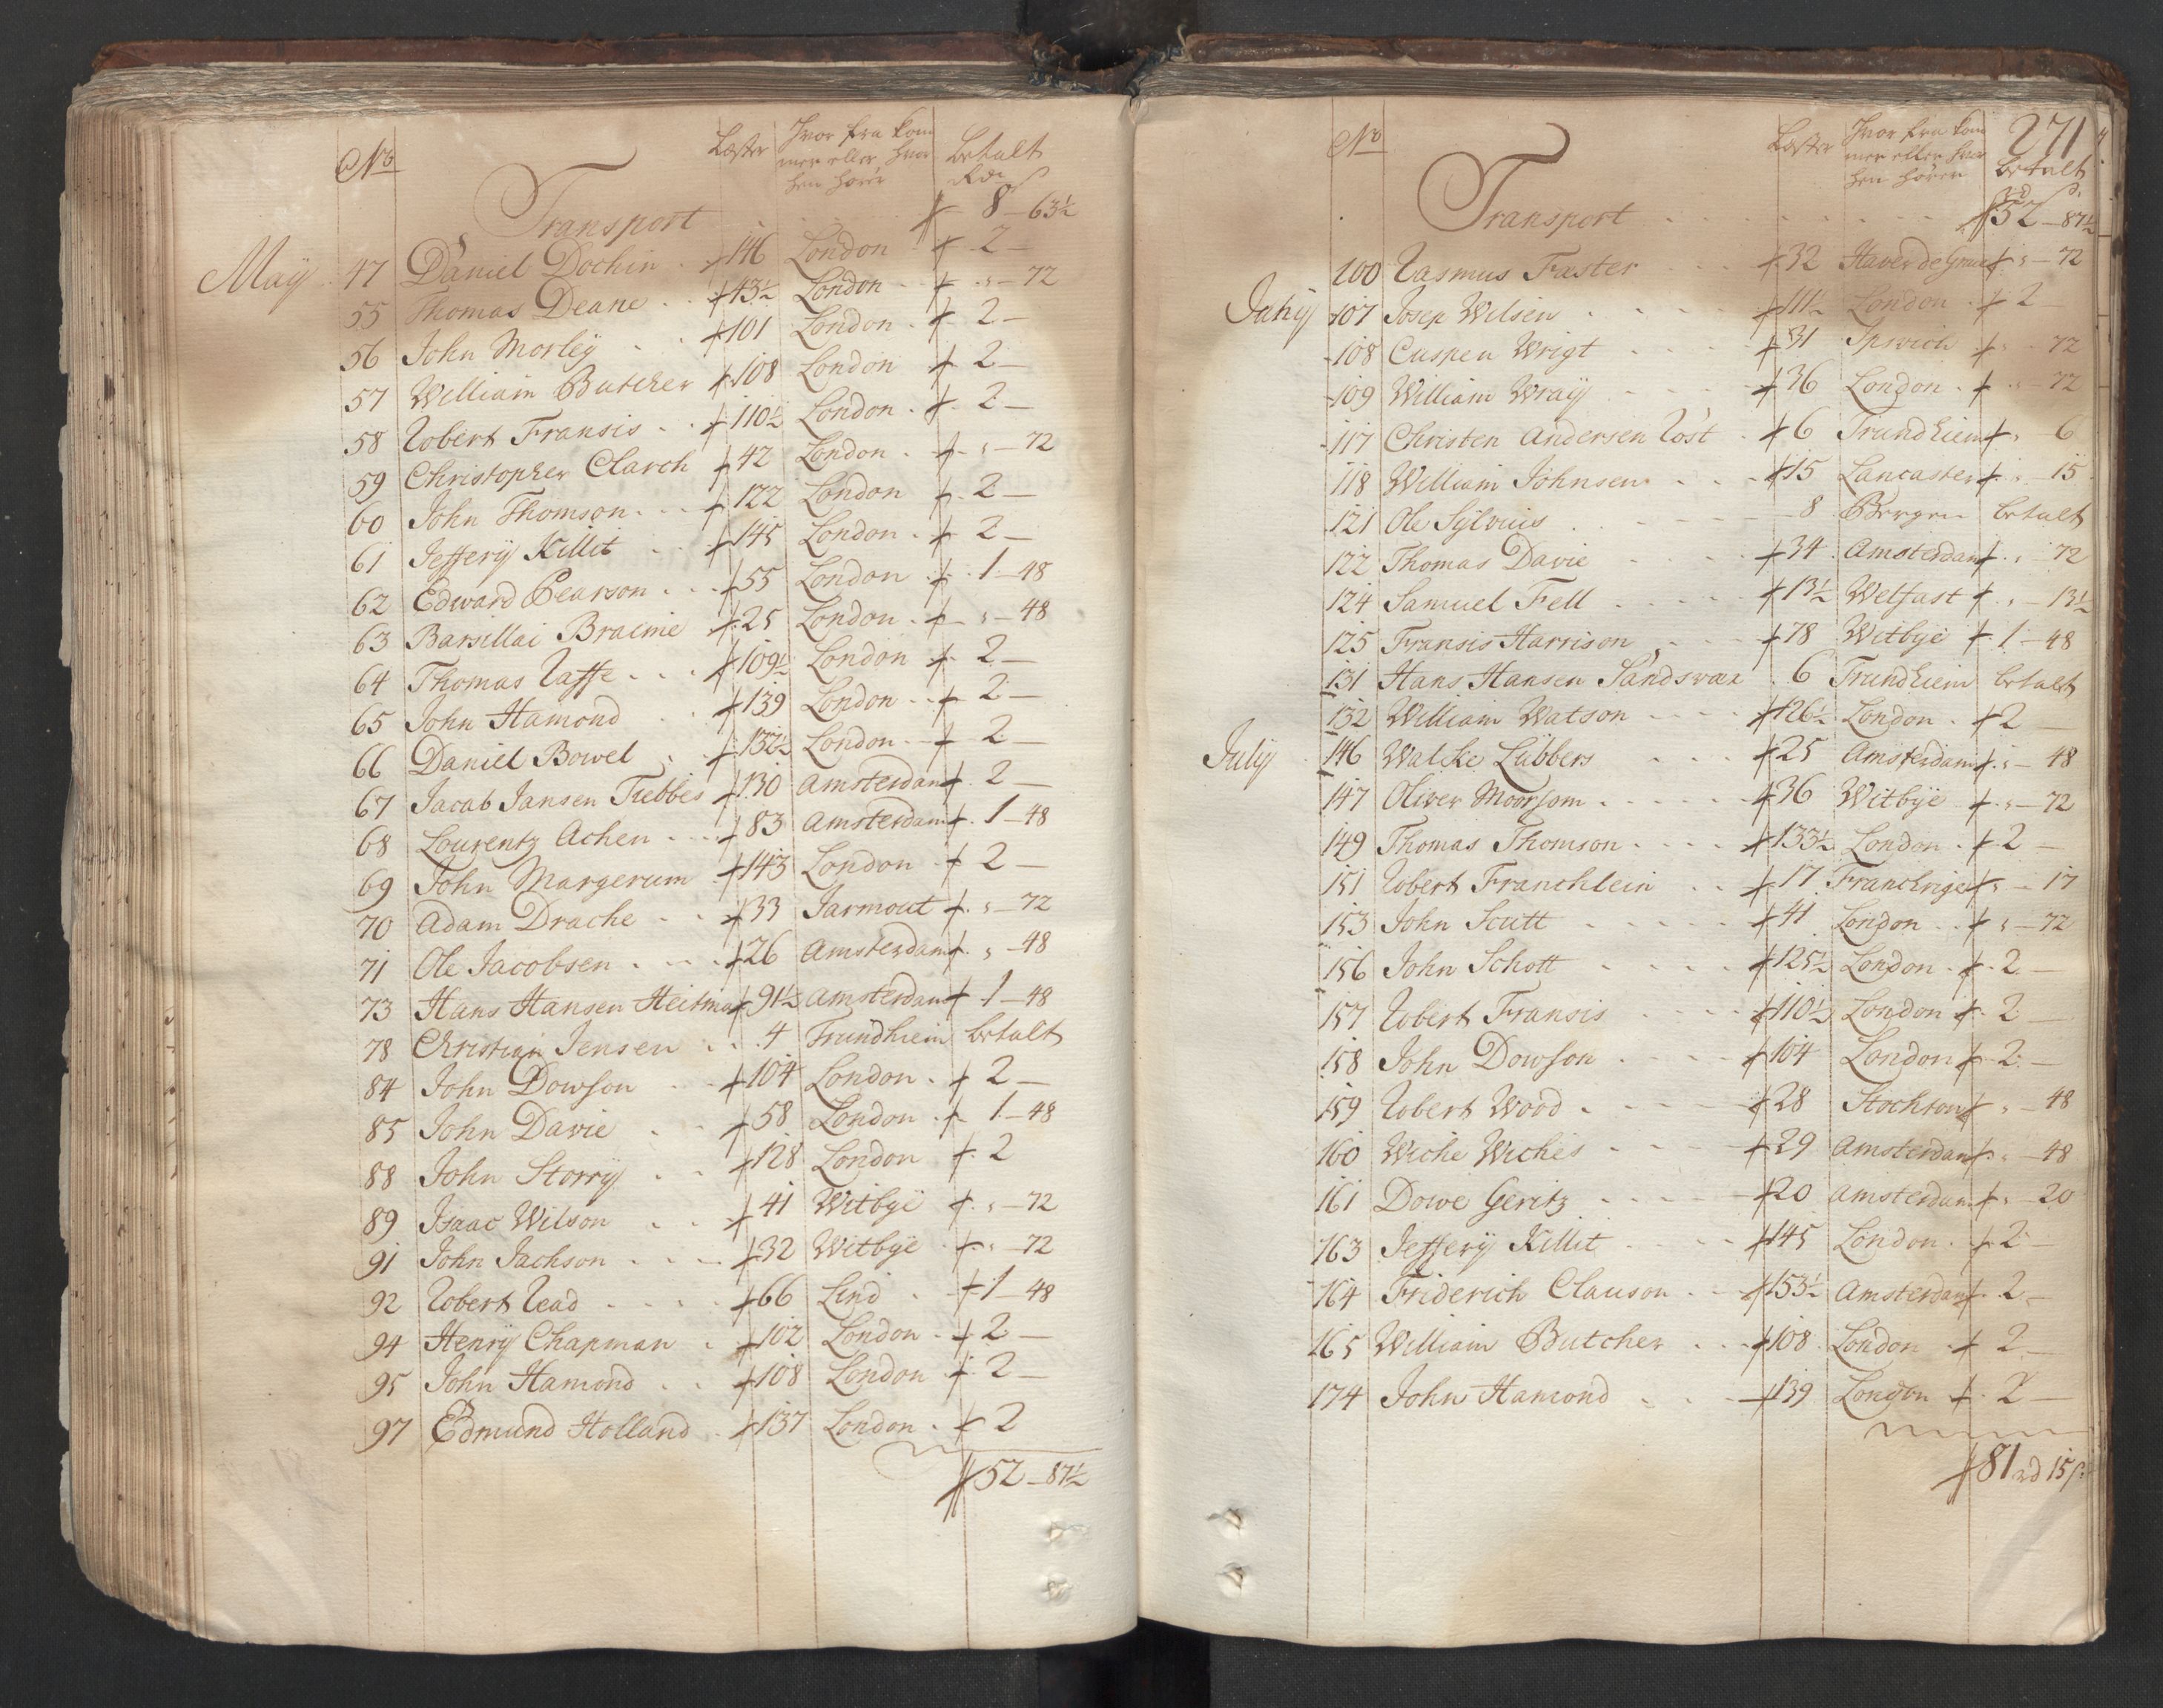 No Læster Hvor fra kom
mer eller hvor
hen hører betalt
Rdr ß
Transport 8 – 63½
Maÿ 47 Daniel Dochin 146 London 2 –
55 Thomas Deane 43½ London " – 72
56 John Morleÿ 101 London 2 –
57 William Butcher 108 London 2 –
58 Robert Fransis 110½ London 2 –
59 Christopher Clarch 42 London " – 72
60 John Thomson 122 London 2 –
61 Jefferÿ Killit 145 London 2 –
62 Edward Pearson 55 London 1 – 48
63 Barsillai Braeme 25 London " – 48
64 Thomas Raffe 109½ London 2 –
65 John Hamond 139 London 2 –
66 Daniel Bowel 132½ London 2 –
67 Jacab Jansen Trebbes 130 Amsterdam 2 –
68 Lourentz Achen 83 Amsterdam 1 – 48
69 John Margerum 143 London 2 –
70 Adam Drache 33 Jarmout " – 72
71 Ole Jacobsen 26 Amsterdam " – 48
73 Hans Hansen Heitman 91½ Amsterdam 1 – 48
78 Christian Jensen 4 Trundhiem betalt
84 John Dowson 104 London 2 –
85 John Davie 58 London 1 – 48
88 John Storrÿ 128 London 2
89 Isaac Wilson 41 Witbÿe " – 72
91 John Jachson 32 Witbÿe " – 72
92 Robert Read 66 Lind 1 – 48
94 Henrÿ Chapman 102 London 2 –
95 John Hamond 108 London 2 –
97 Edmund Holland 137 London 2
52 – 87½
271
No Læster Hvor fra kom
mer eller hvor
hen hører betalt
rd ß
Transport 52 – 87½
100 Rasmus Faster 32 Haver de Grace " – 72
Juhÿ 107 Josep Wilsen 111½ London 2
108 Caspen Wrigt 31 Ipswich " – 72
109 William Wraÿ 36 London " – 72
117 Christen Andersen Rost 6 Trundhiem " 6
118 William Johnsen 15 Lancaster " – 15
121 Ole Sÿlvius 8 Bergen betalt
122 Thomas Davie 34 Amsterdam " 72
124 Samuel Fell 13½ Welfast " – 13½
125 Fransis Harrison 78 Witbÿe 1 – 48
131 Hans Hansen Sandswax 6 Trundhiem betalt
132 William Watson 126½ London 2 –
Julÿ 146 Walcke Lübbers 25 Amsterdam " – 48
147 Oliver Moorsom 36 Witbÿe " – 72
149 Thomas Thomson 133½ London 2 –
151 Robert Franchlein 17 Franchrige " – 17
153 John Scutt 41 London " – 72
156 John Schott 125½ London 2 –
157 Robert Fransis 110½ London 2 –
158 John Dowson 104 London 2 –
159 Robert Wood 28 Stochton " – 48
160 Wiche Wiches 29 Amsterdam " – 48
161 Dowe Geritz 20 Amsterdam " – 20
163 Jefferÿ Killit 145 London 2 –
164 Friderich Clauson 153½ Amsterdam 2 –
165 William Butcher 108 London 2 –
174 John Hamond 139 London 2 –
81 rd 15 ß